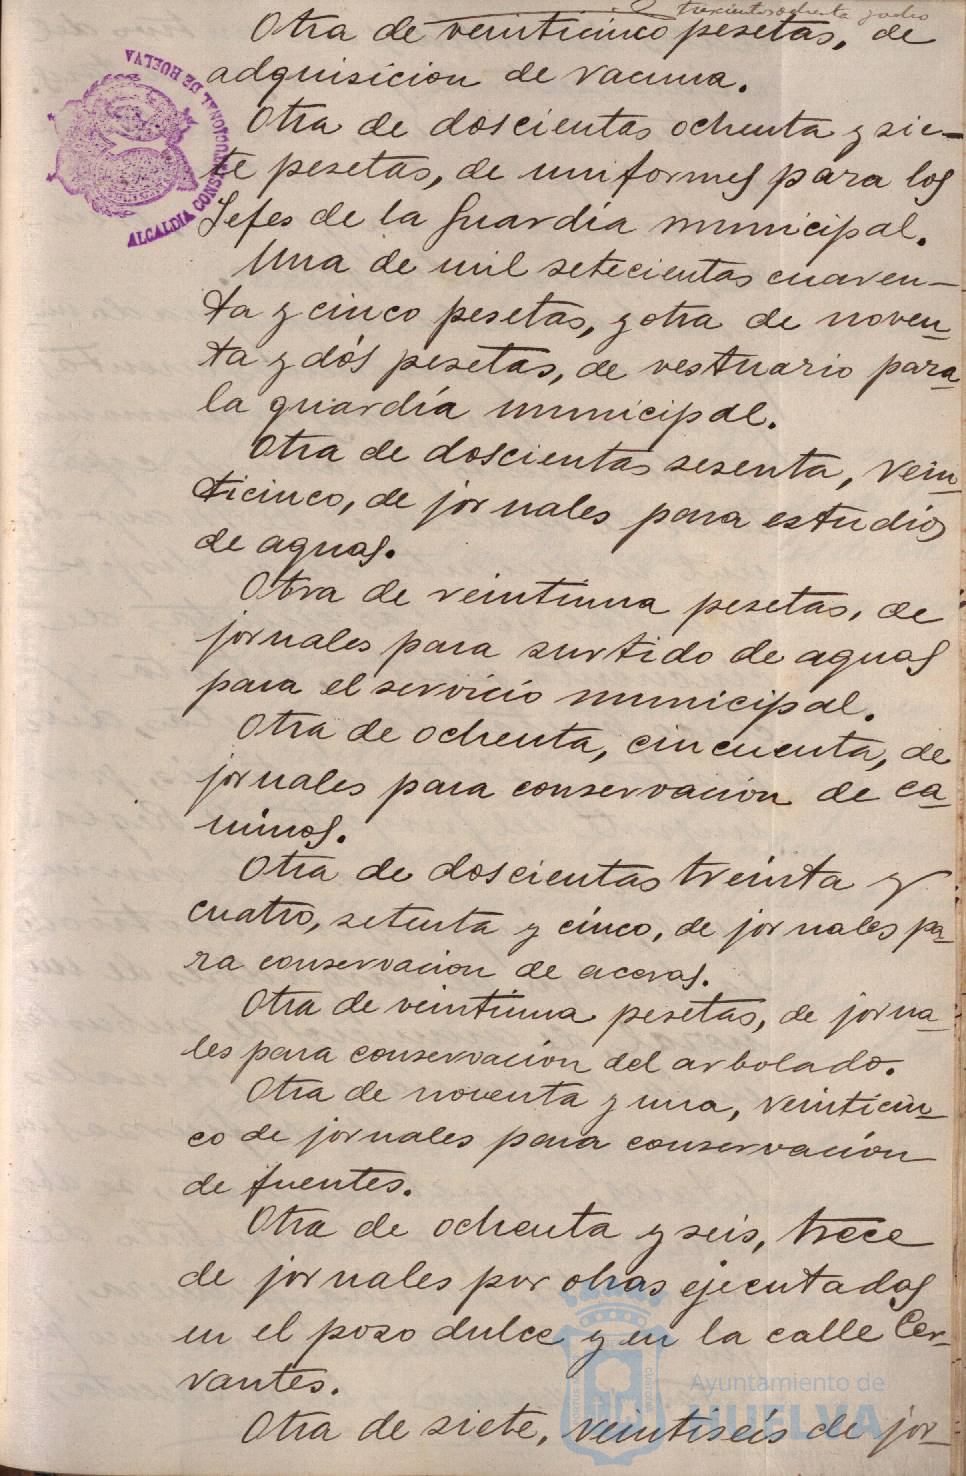 trescientos ochenta y ocho
Otra de veinticinco pesetas, de
adquisicion de vacuna.
Otra de doscientas ochenta y sie-
te pesetas, de uniformes para los
Jefes de la Guardia municipal.
Una de mil setecientas cuaren-
ta y cinco pesetas, y otra de noven-
ta y dós pesetas, de vestuario para
la guardía municipal.
Otra de doscientas sesenta, vein-
ticinco, de jornales para estudios
de aguas.
Otra de veintiuna pesetas, de
jornales para surtido de aguas
para el servicio municipal.
Otra de ochenta, cincuenta, de
jornales para conservación de ca-
minos.
Otra de doscientas treinta y
cuatro, setenta y cinco, de jornales pa-
ra conservacion de aceras.
Otra de veintiuna pesetas, de jorna-
les para conservación del arbolado.
Otra de noventa y una, veinticin-
co de jornales para conservación
de fuentes.
Otra de ochenta y seis, trece
de jornales por obras ejecutadas
en el pozo dulce y en la calle Cer-
vantes.
Otra de siete, veintiseis de jor-
ALCALDIA CONSTITUCIONAL DE HUELVA
Ayuntamiento de
HUELVA